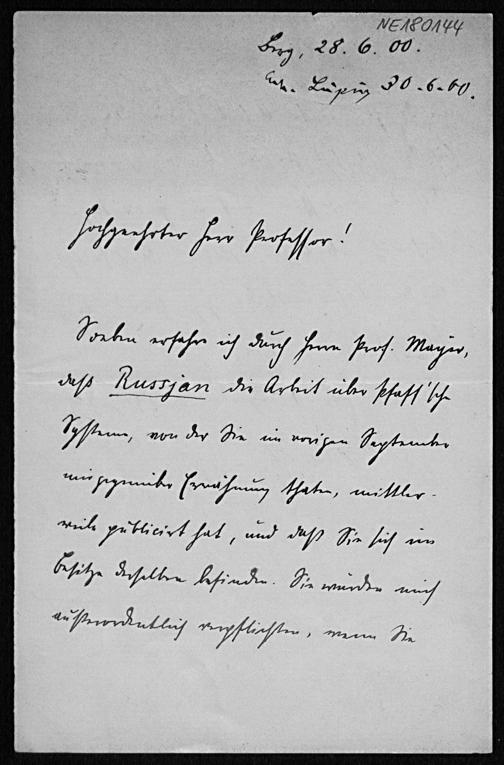 NE180144
Berg, 28. 6. 00.
Leipzig 30-6-00.
Hochgeehrter Herr Professor!
Soeben erfahre ich durch Herrn Prof. Mayer,
daß Russjan die Arbeit über Pfaff'sche
Systeme, von der Sie im vorigen September
mir gegenüber Erwähnung thaten, mittler-
weile publicirt hat, und daß Sie sich im
Besitze derselben befinden. Sie würden mich
außerordentlich verpflichten, wenn Sie